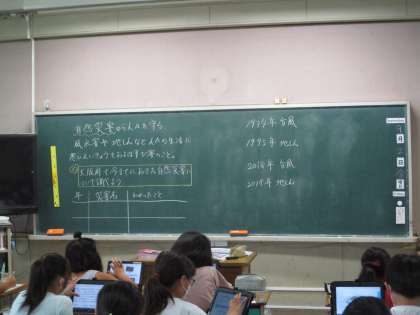 自然災害から人々を守る。
風水害や地しんなど人々の生活に
悪いえいきょうをおよぼす事がらのこと。
大阪府で今までにおきた自然災害に
ついて調べよう
年 災害名 わかったこと
1934年 台風
1995年 地しん
2018年 台風
2018年 地しん